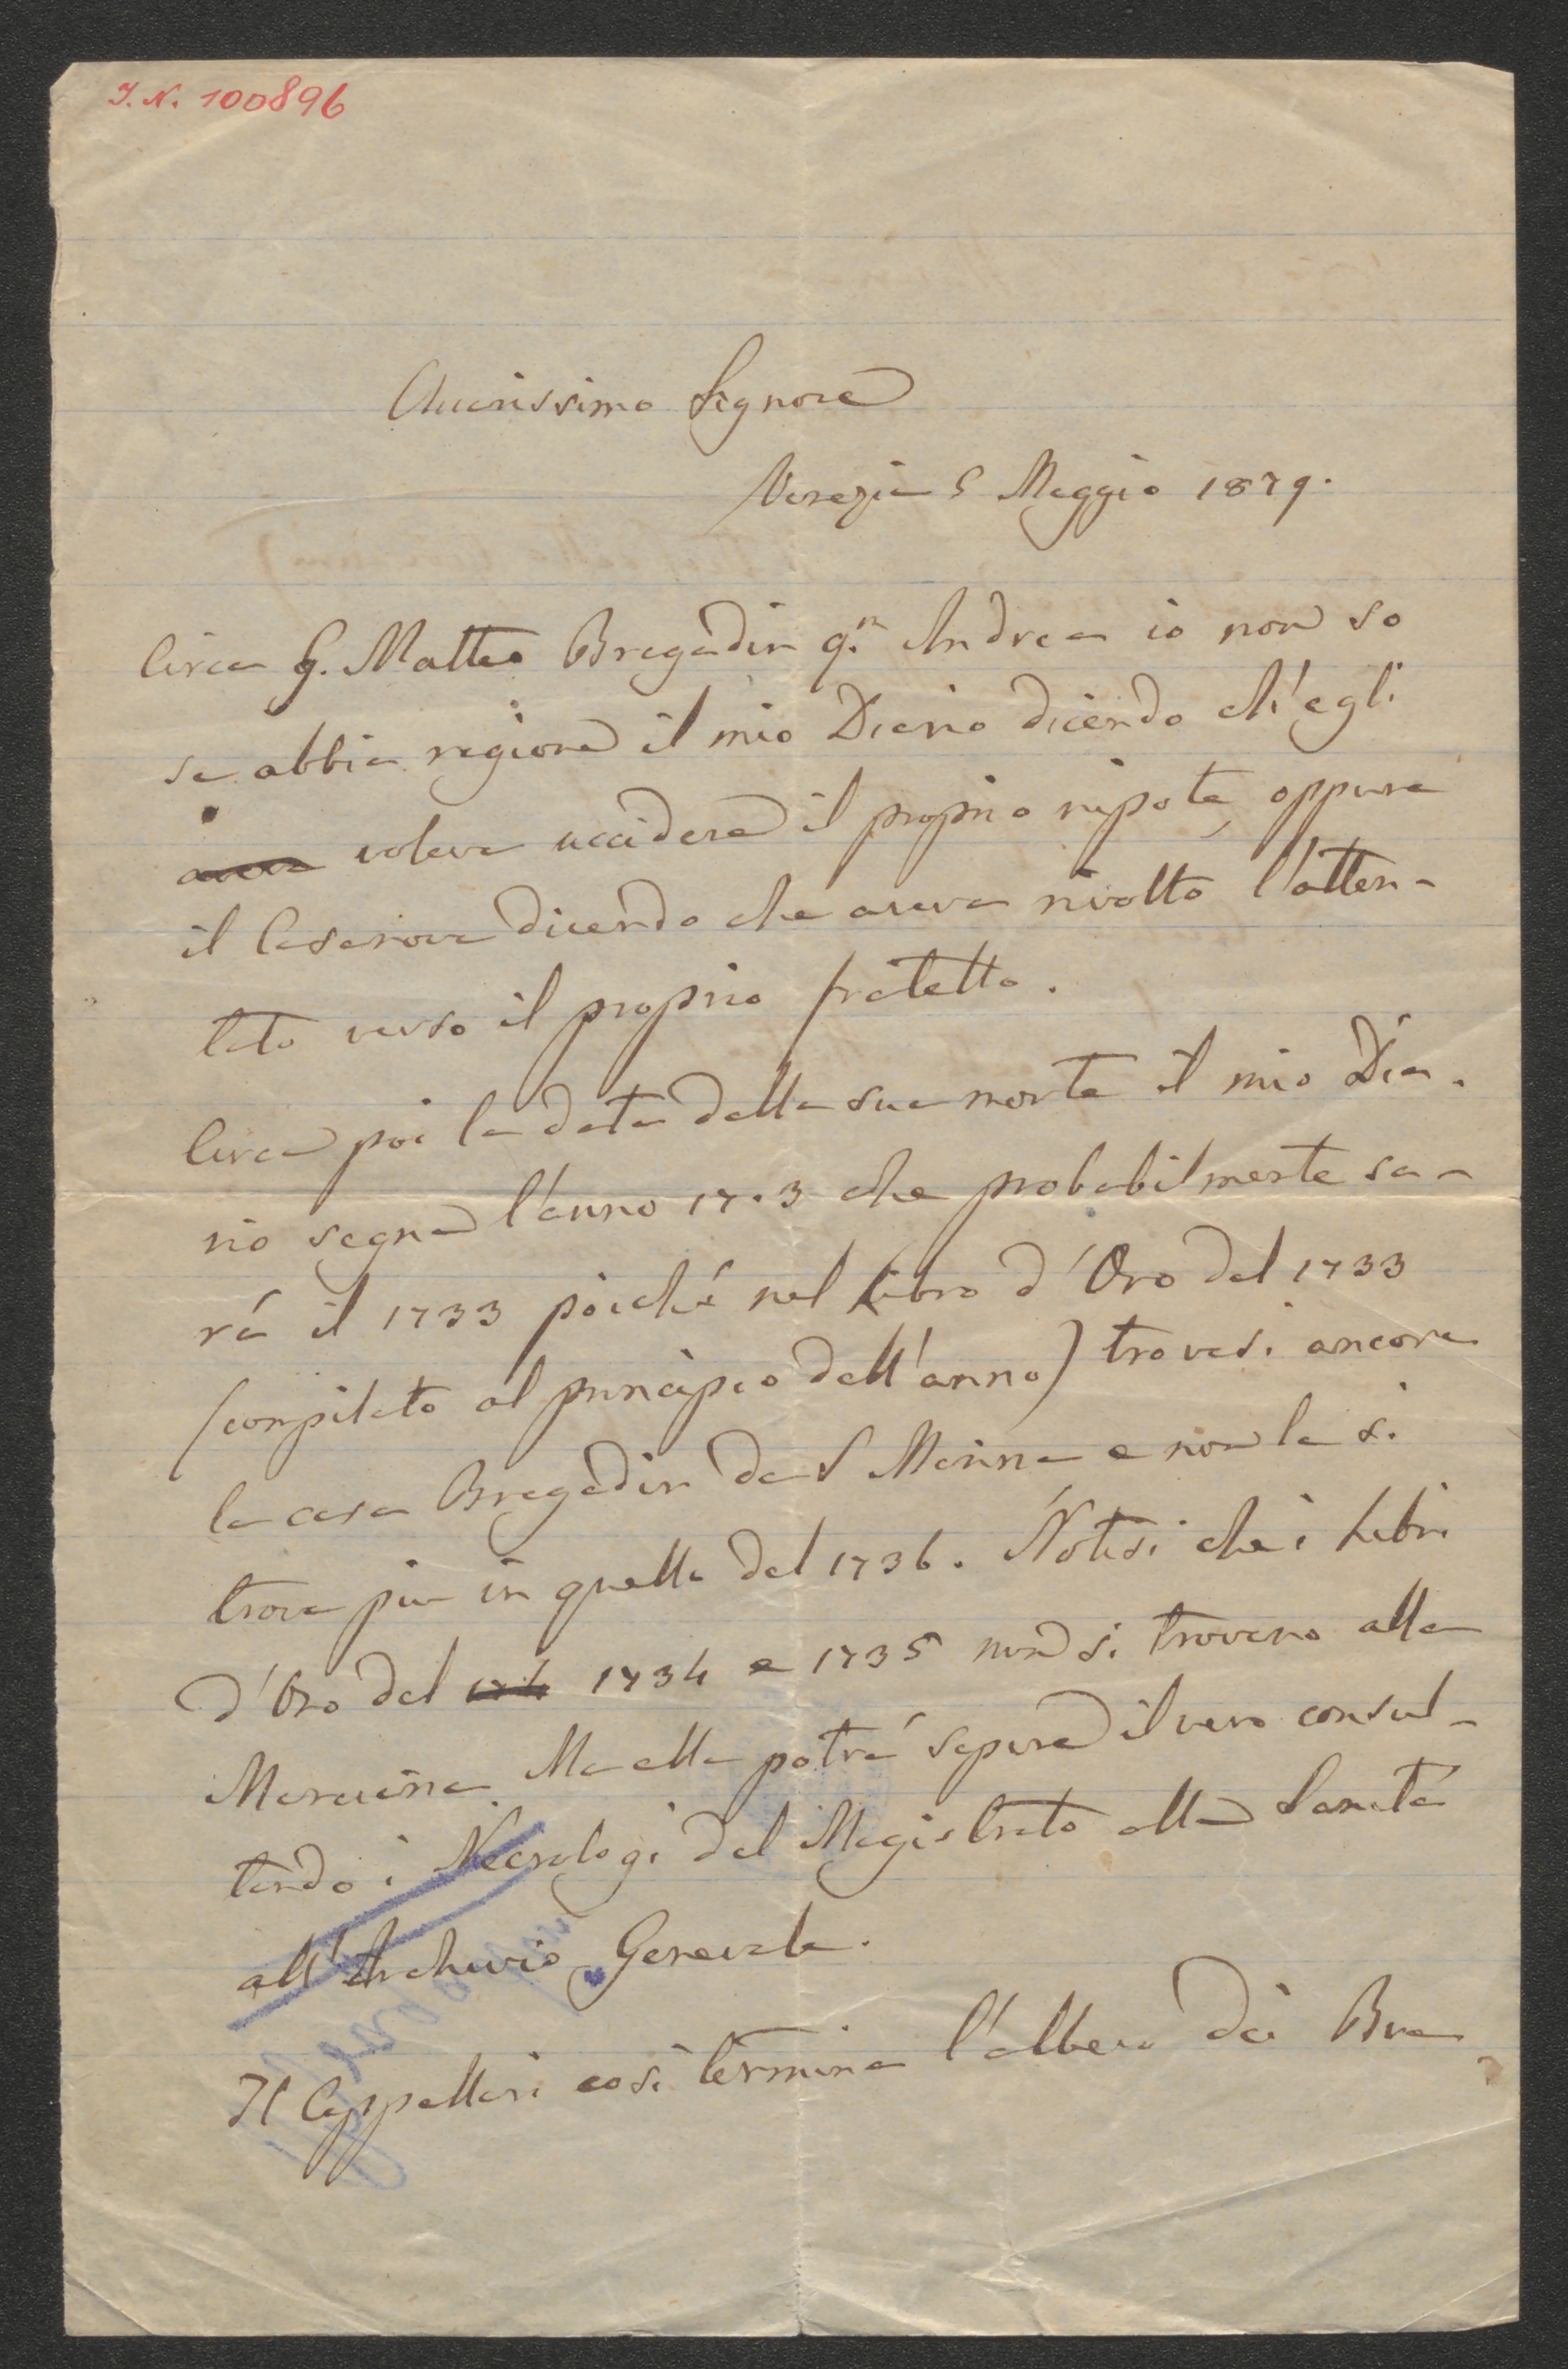 I. N. 100896
Chiarissimo Signore
Venezia 5 Maggio 1879.
Circa G. Matteo Bragadin q.m Andrea io non so
se abbia ragione il mio Diario dicendo ch'egli
voleva uccidere il proprio nipote, oppure
il Casanova dicendo che aveva rivolto l'atten-
tato verso il proprio fratello.
Circa poi la data della sua morte il mio Dia-
rio segna l'anno 17.3 che probabilmente sa-
rá il 1733 poiché nel Libro d'Oro del 1733
(compilato al principio dell'anno) trovasi ancora
la casa Bragadin da S Marina e non la si
trova piu in quello del 1736. Notisi che i Libri
d'Oro del 1734 e 1735 non si trovano alla
Marciana. Ma ella potrá sapere il vero consul-
tando i Necrologi del Magistrato alla Sanitá
all'Archivio Generale.
Il Cappellari cosi termina l'albero dei Bra